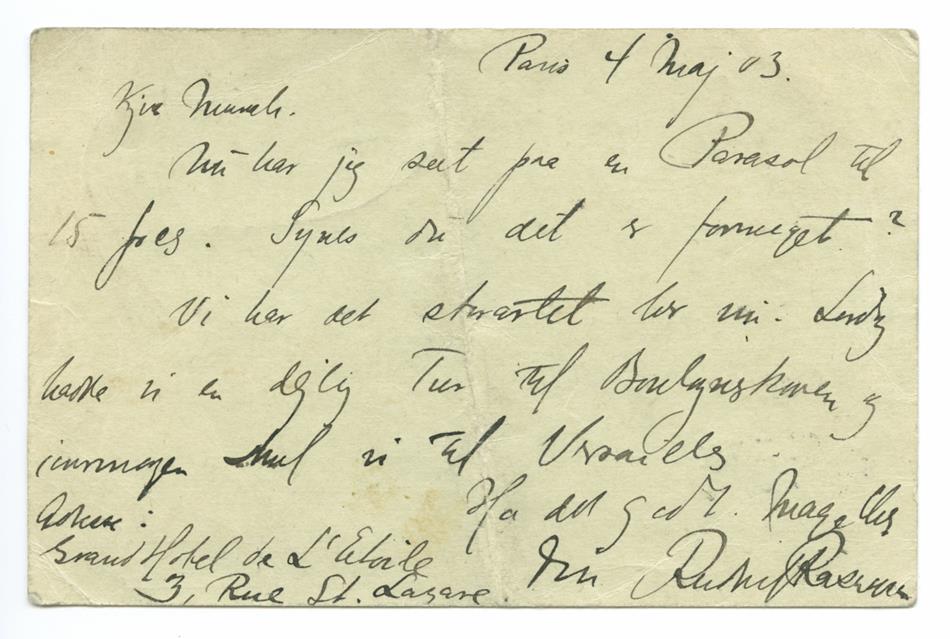 Paris 4 Maj 03.
Kjære Munch.
Nu har jeg seet paa en Parasol til
15 frcs. Synes du det er formeget?
Vi har det storartet her nu. Lørdag
hadde vi en dejlig Tur til Boulogneskoven og
imorgen skal vi til Versailles.
Ha det godt.
Adresse:
Grand Hotel de L'Etoile
3, Rue St. Lazare
Din Rudolf Rasmussen